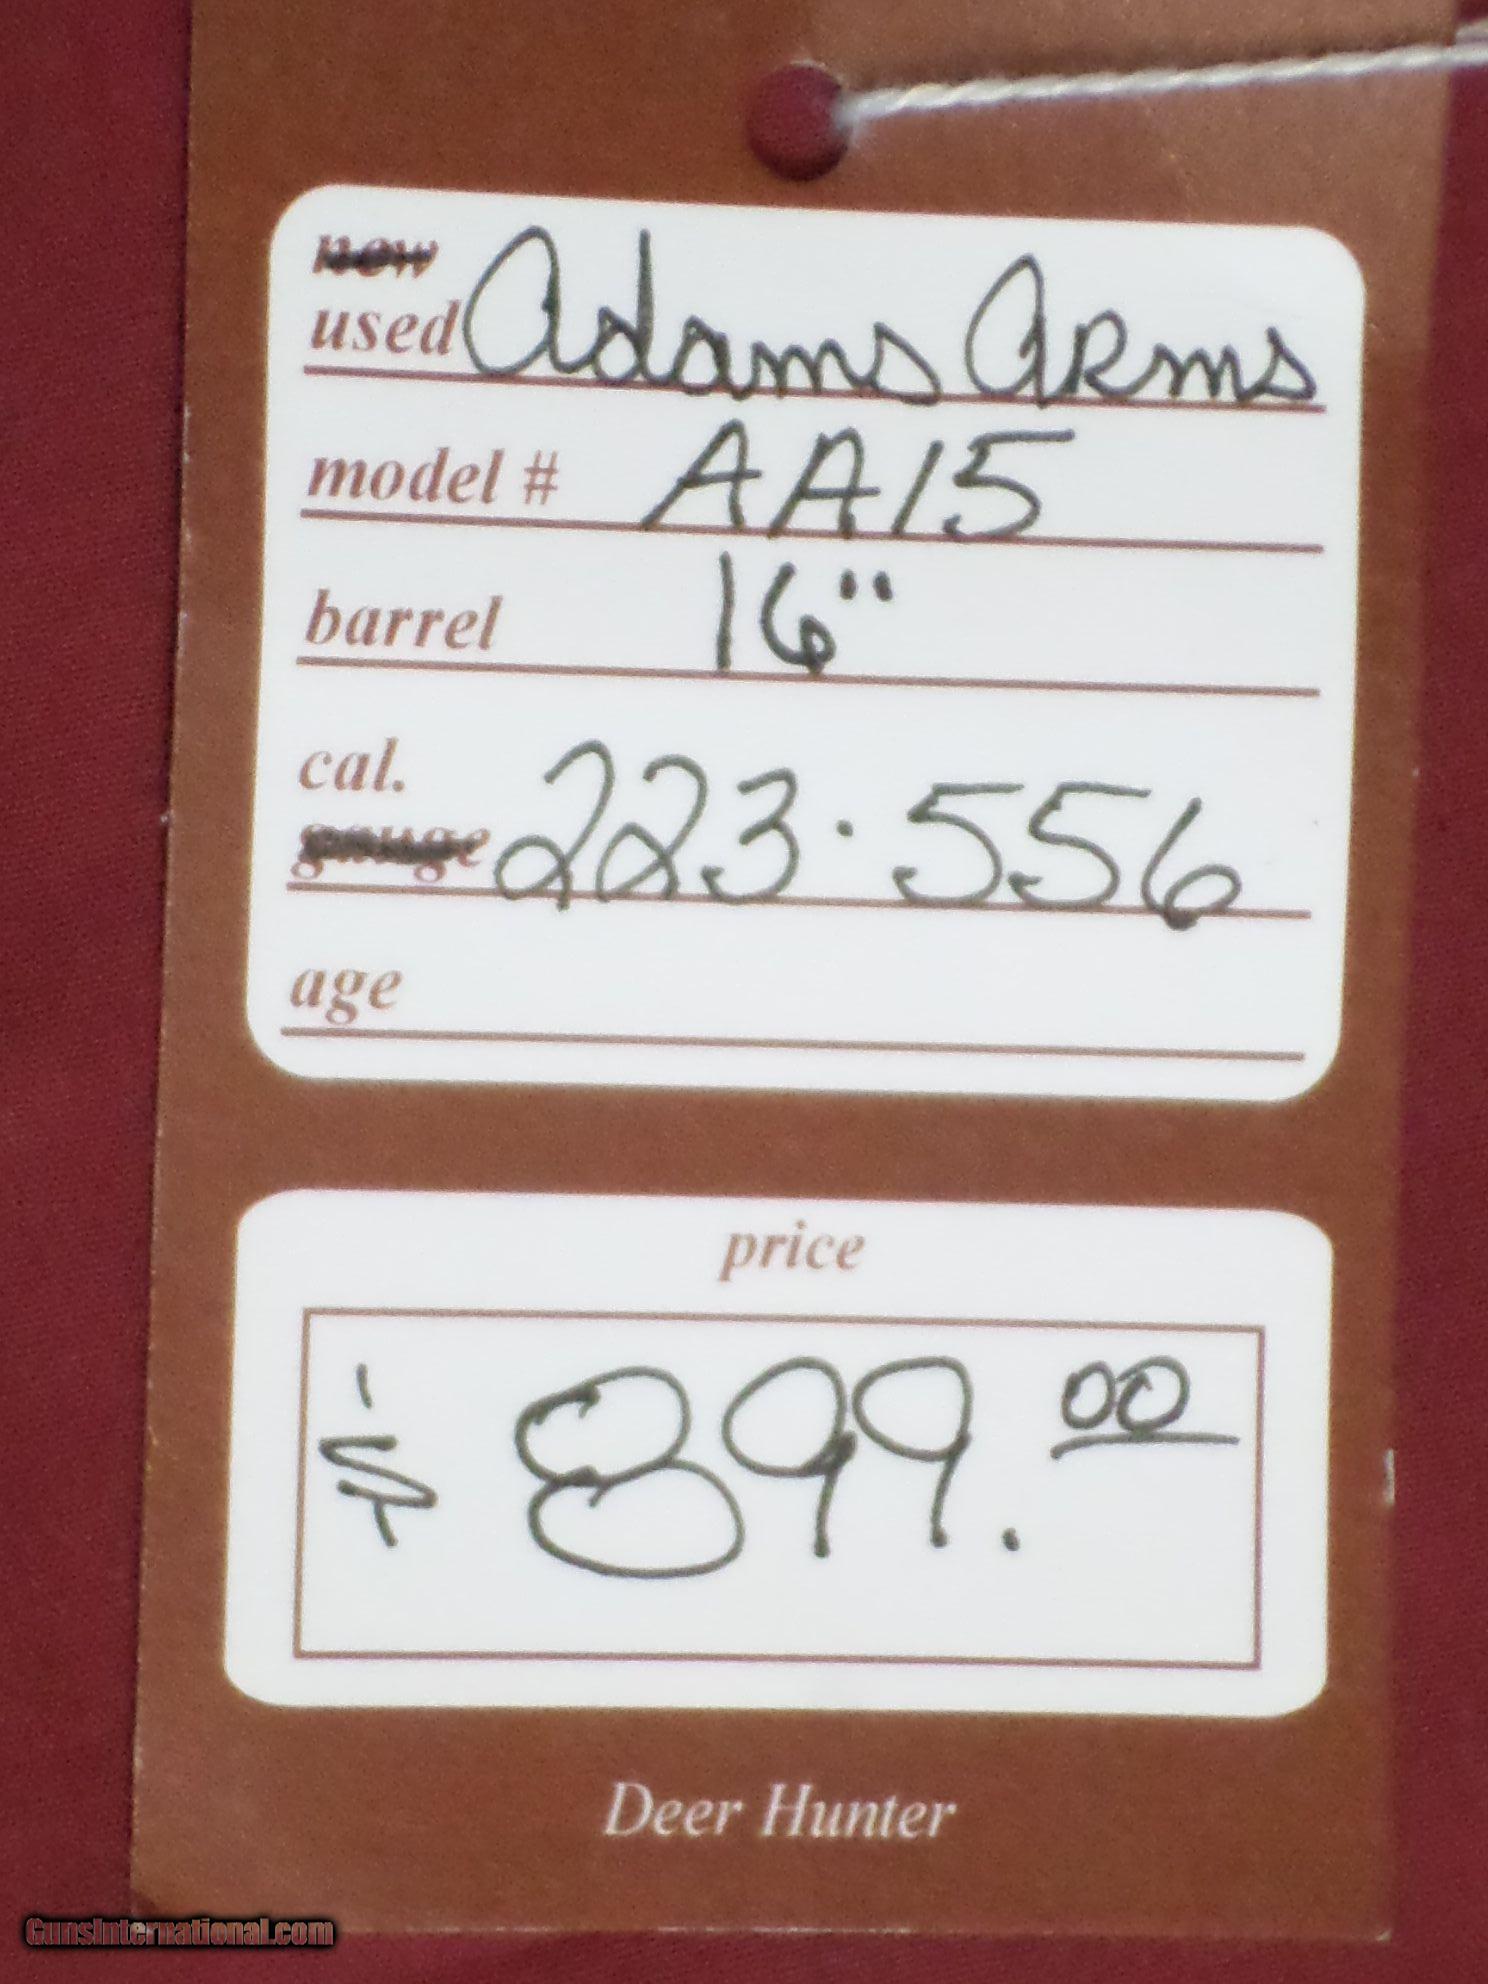 new
used Adams Arms
model # AA15
barrel 16"
cal.
gauge 223.556
age
price
$ 899.00
Deer Hunter
GunsInternational.com